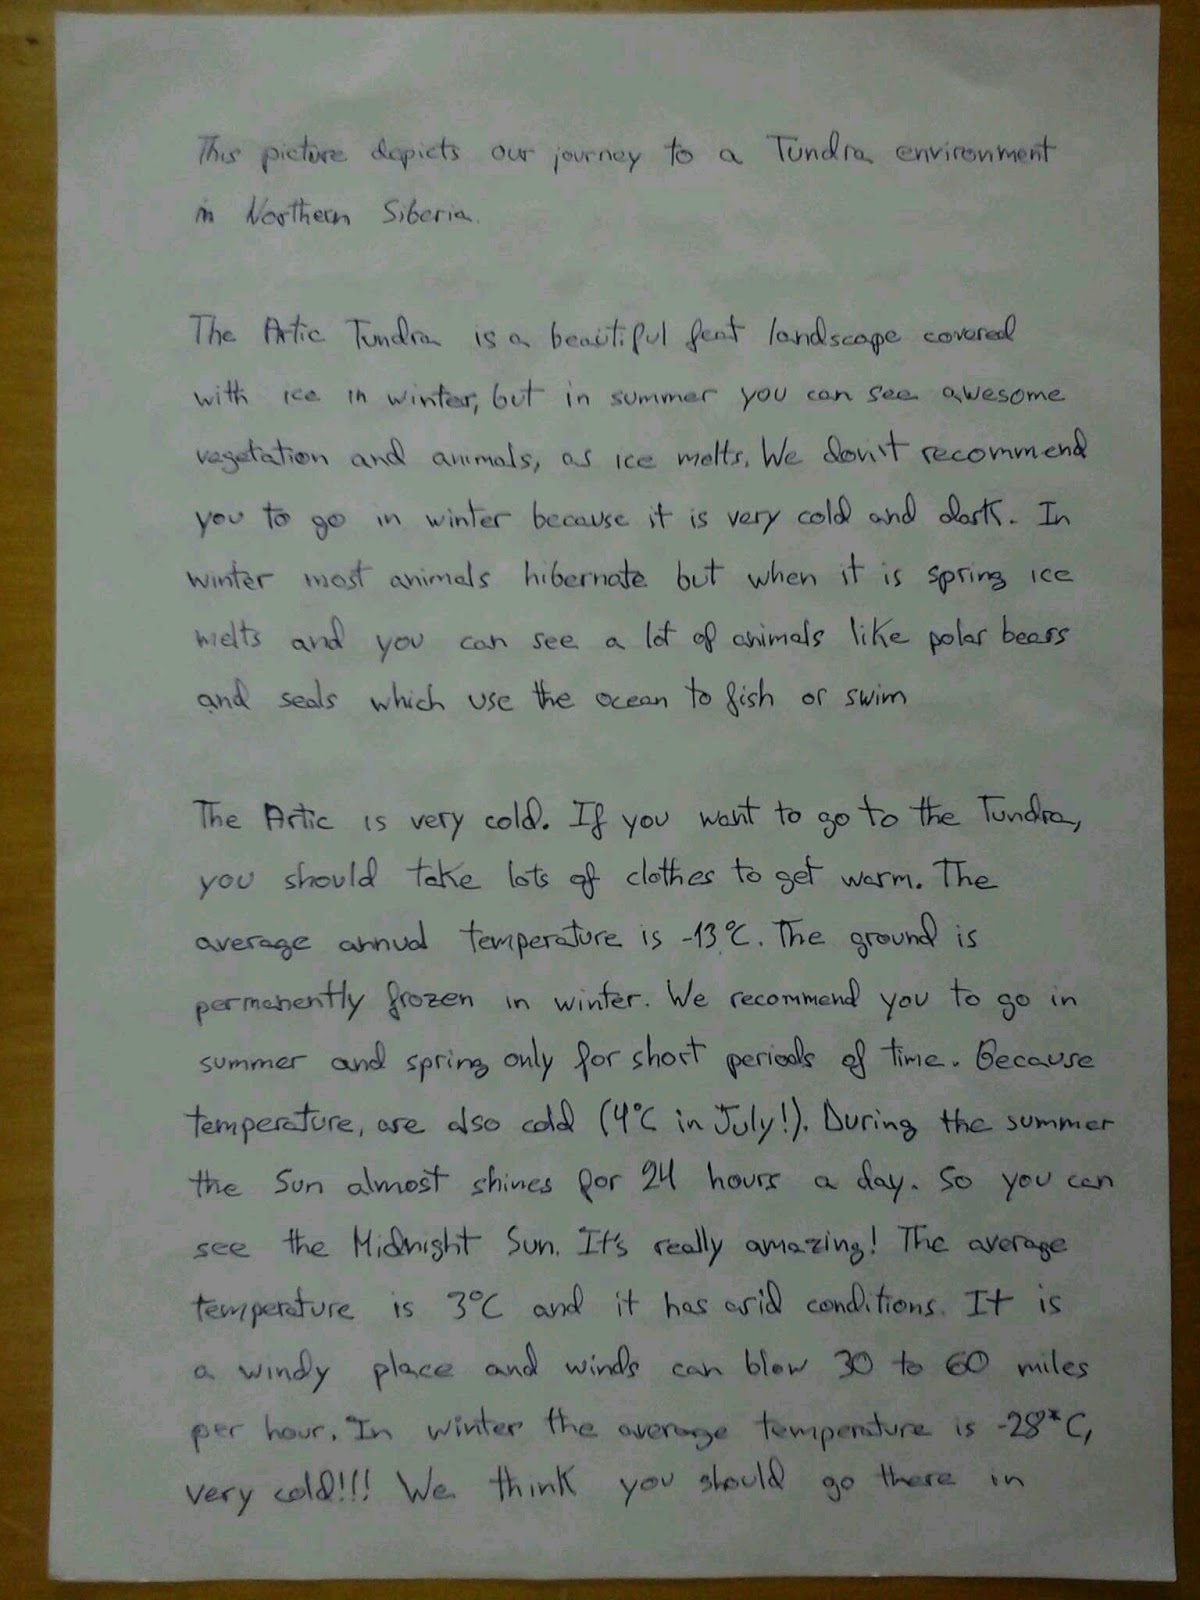 This picture depicts our journey to a Tundra environment
in Northern Siberia.
The Artic Tundra is a beautiful feat landscape covered
with ice in winter, but in summer you can see awesome
vegetation and animals, as ice melts. We don't recommend
you to go in winter because it is very cold and dark. In
winter most animals hibernate but when it is spring ice
melts and you can see a lot of animals like polar bears
and seals which use the ocean to fish or swim
The Artic is very cold. If you want to go to the Tundra,
you should take lots of clothes to get warm. The
average annual temperature is -13°C. The ground is
permanently frozen in winter. We recommend you to go in
summer and spring only for short periods of time. Because
temperature, are also cold (4°C in July!). During the summer
the Sun almost shines for 24 hours a day. So you can
see the Midnight Sun. It's really amazing! The average
temperature is 3°C and it has arid conditions. It is
a windy place and winds can blow 30 to 60 miles
per hour. In winter the average temperature is -28°C,
very cold!!! We think you should go there in